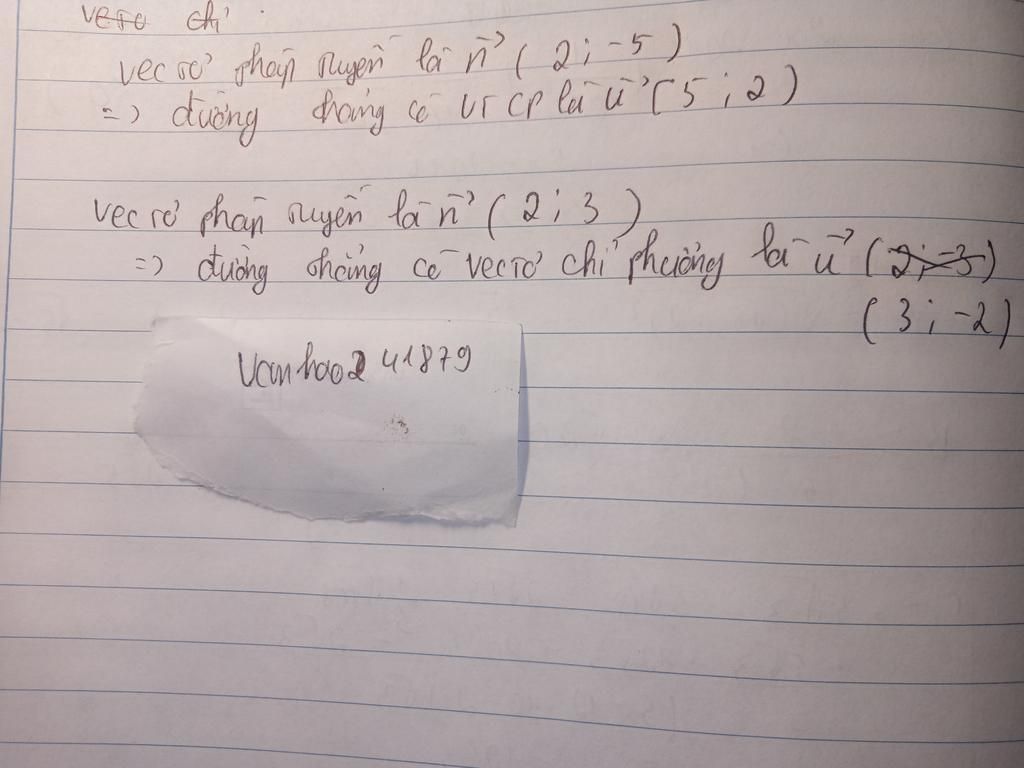 vectơ chỉ
vectơ pháp tuyến là n→ ( 2 ; -5 )
=> đường thẳng có VTCP là u→ ( 5 ; 2 )
vectơ pháp tuyến là n→ ( 2 ; 3 )
=> đường thẳng có vectơ chỉ phương là u→ ( 2 ; -3 )
( 3 ; -2 )
vanhao241879